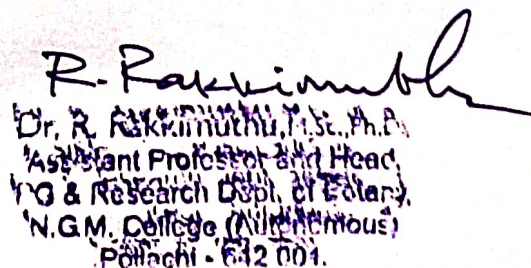 R. Rakkimuthu
Dr. R. Rakkimuthu, M.Sc., Ph.D.,
Assistant Professor and Head,
PG & Research Dept. of Botany,
N.G.M. College (Autonomous)
Pollachi - 642 001.